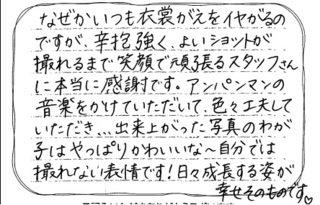 なぜかいつも衣裳がえをイヤがるの
ですが、辛抱強く、よいショットが
撮れるまで笑顔で頑張るスタッフさん
に本当に感謝です。アンパンマンの
音楽をかけていただいて、色々工夫して
いただき、、、出来上がった写真のわが
子はやっぱりかわいいな～自分では
撮れない表情です!日々成長する姿が
幸せそのものです♡